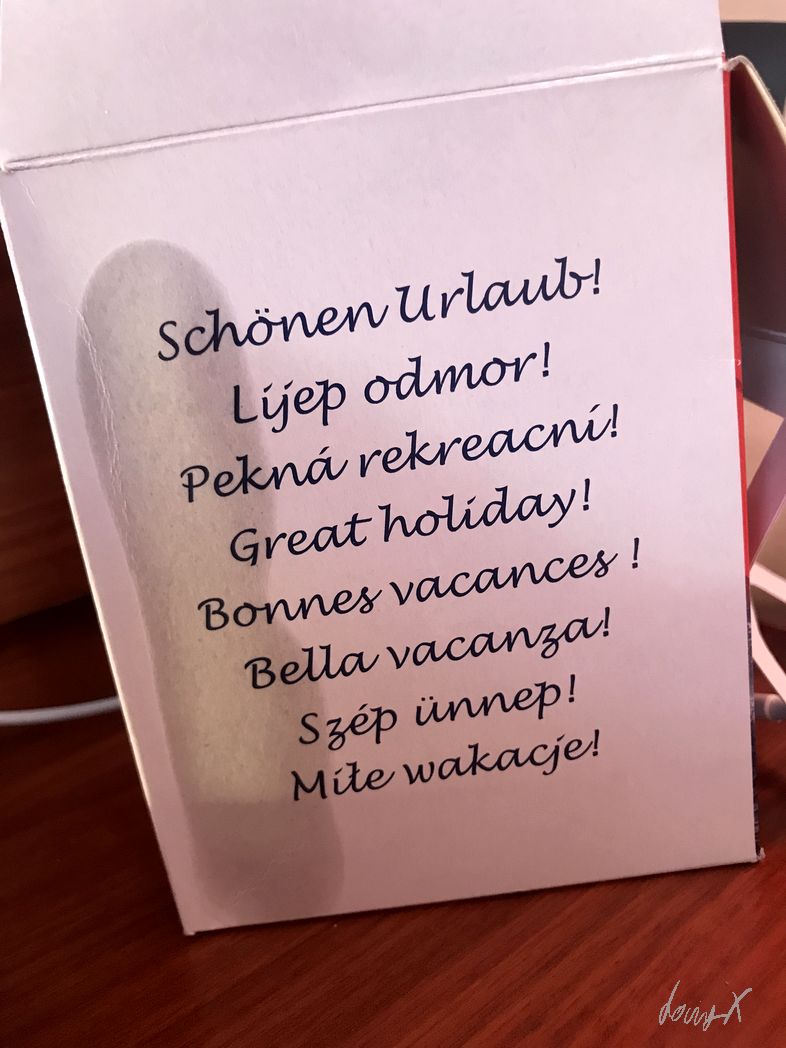 Schönen Urlaub!
Lijep odmor!
Pekná rekreacní!
Great holiday!
Bonnes vacances !
Bella vacanza!
Szép ünnep!
Miłe wakacje!